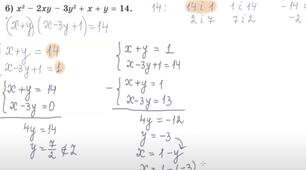 6) x² − 2xy − 3y² + x + y = 14.
(x+y)(x-3y+1)=14
14: 14 i 1 1 i 14 -14
2 i 7 7 i 2 -2
x+y = 14
x-3y+1 = 1
x+y = 14
x-3y = 0
4y = 14
y = 7/2 ∉ Z
x+y = 1
x-3y+1 = 14
- x+y = 1
x-3y = 13
4y = -12
y = -3
x = 1-y
x = 1-(-3)